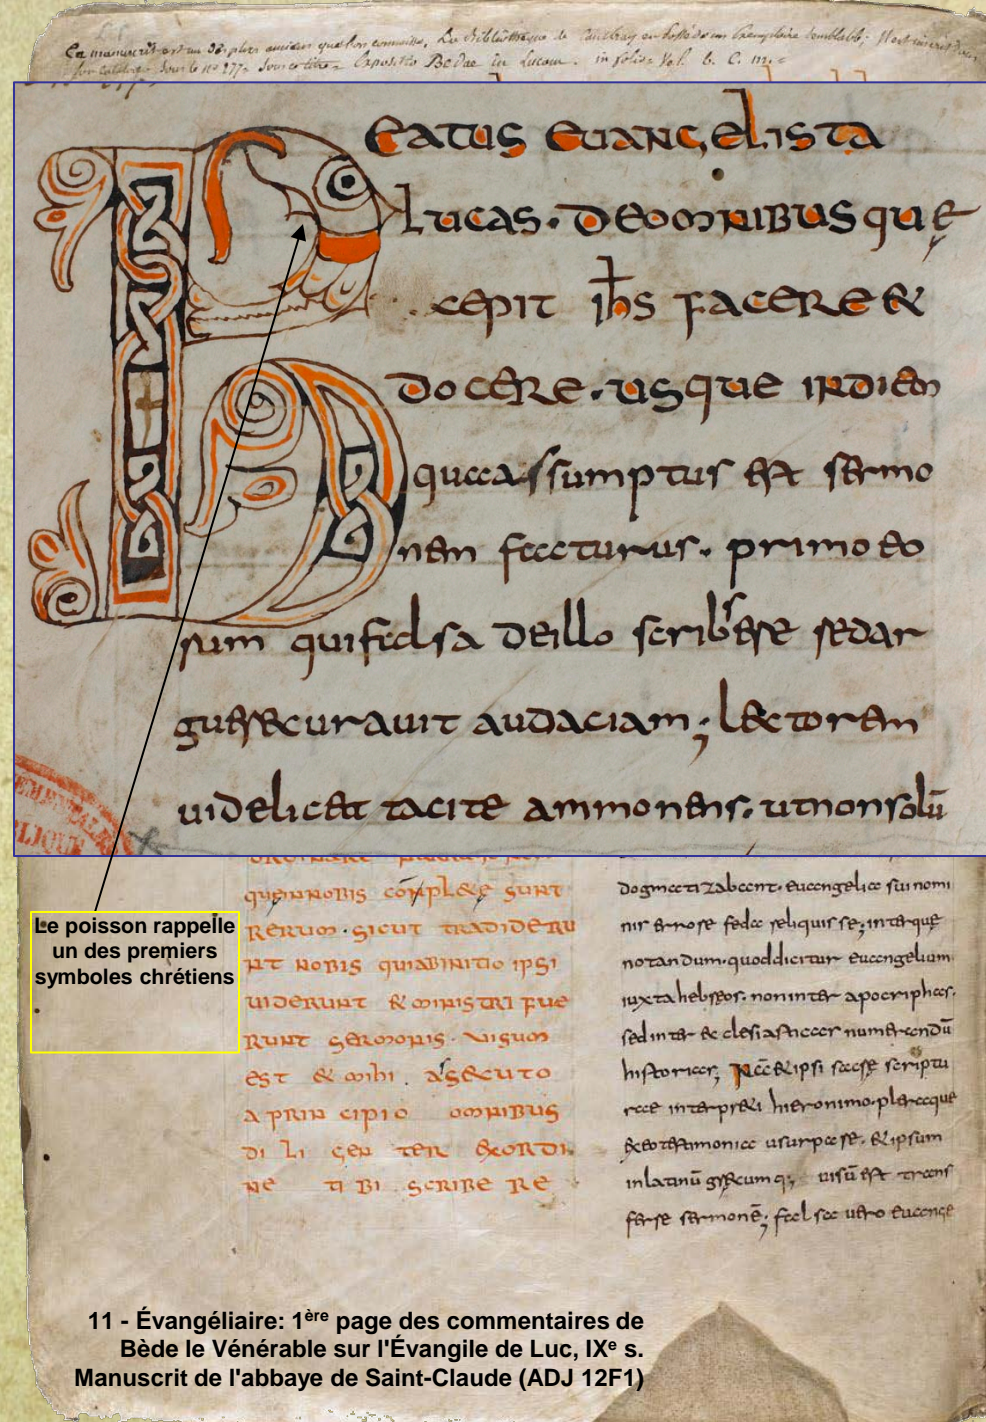 Ce manuscrit est un des plus anciens que l'on connaisse. La Bibliothèque de Cambray en possède un Exemplaire semblable; il est inscrit
Sous le no 277, sous ce titre = Expositio Bedae in Lucam. in folio. Vel.
BEATUS EUANGELISTA
LUCAS · DEOMNIBUSQUĘ
CEPIT IHS FACERE &
DOCERE · USQUE INDIEM
quaassumptus est sermo
nem facturus · primo eo
rum quifalsa deillo scribere sedar
guere curauit audaciam; lectorem
uidelicet tacite ammonens · utnonsolū
Le poisson rappelle
un des premiers
symboles chrétiens
COMPLETE SUNT
RERUM · SICUT TRADIDERU
NT NOBIS QUIABINITIO IPSI
UIDERUNT & MINISTRI FUE
RUNT SERMONIS · UISUM
EST & MIHI ASSECUTO
A PRINCIPIO OMNIBUS
DILIGENTER EXORDI
NE TIBI SCRIBERE
dogmatizabant · euangelia sui nomi
nis errore reliquisse; interque
notandum · quoddicitur euangelium
iuxta hebreos · noninter apocriphas ·
sed inter &clesiasticas numerandū
historias; Nā & ipsi sacrę scriptu
rae interpreti hieronimo · pleraque
exeo testimonia usurpare · & ipsum
inlatinū grecumq; uisū est trans
ferre sermonē; falsa uero euange
11 - Évangéliaire: 1ère page des commentaires de
Bède le Vénérable sur l'Évangile de Luc, IXe s.
Manuscrit de l'abbaye de Saint-Claude (ADJ 12F1)